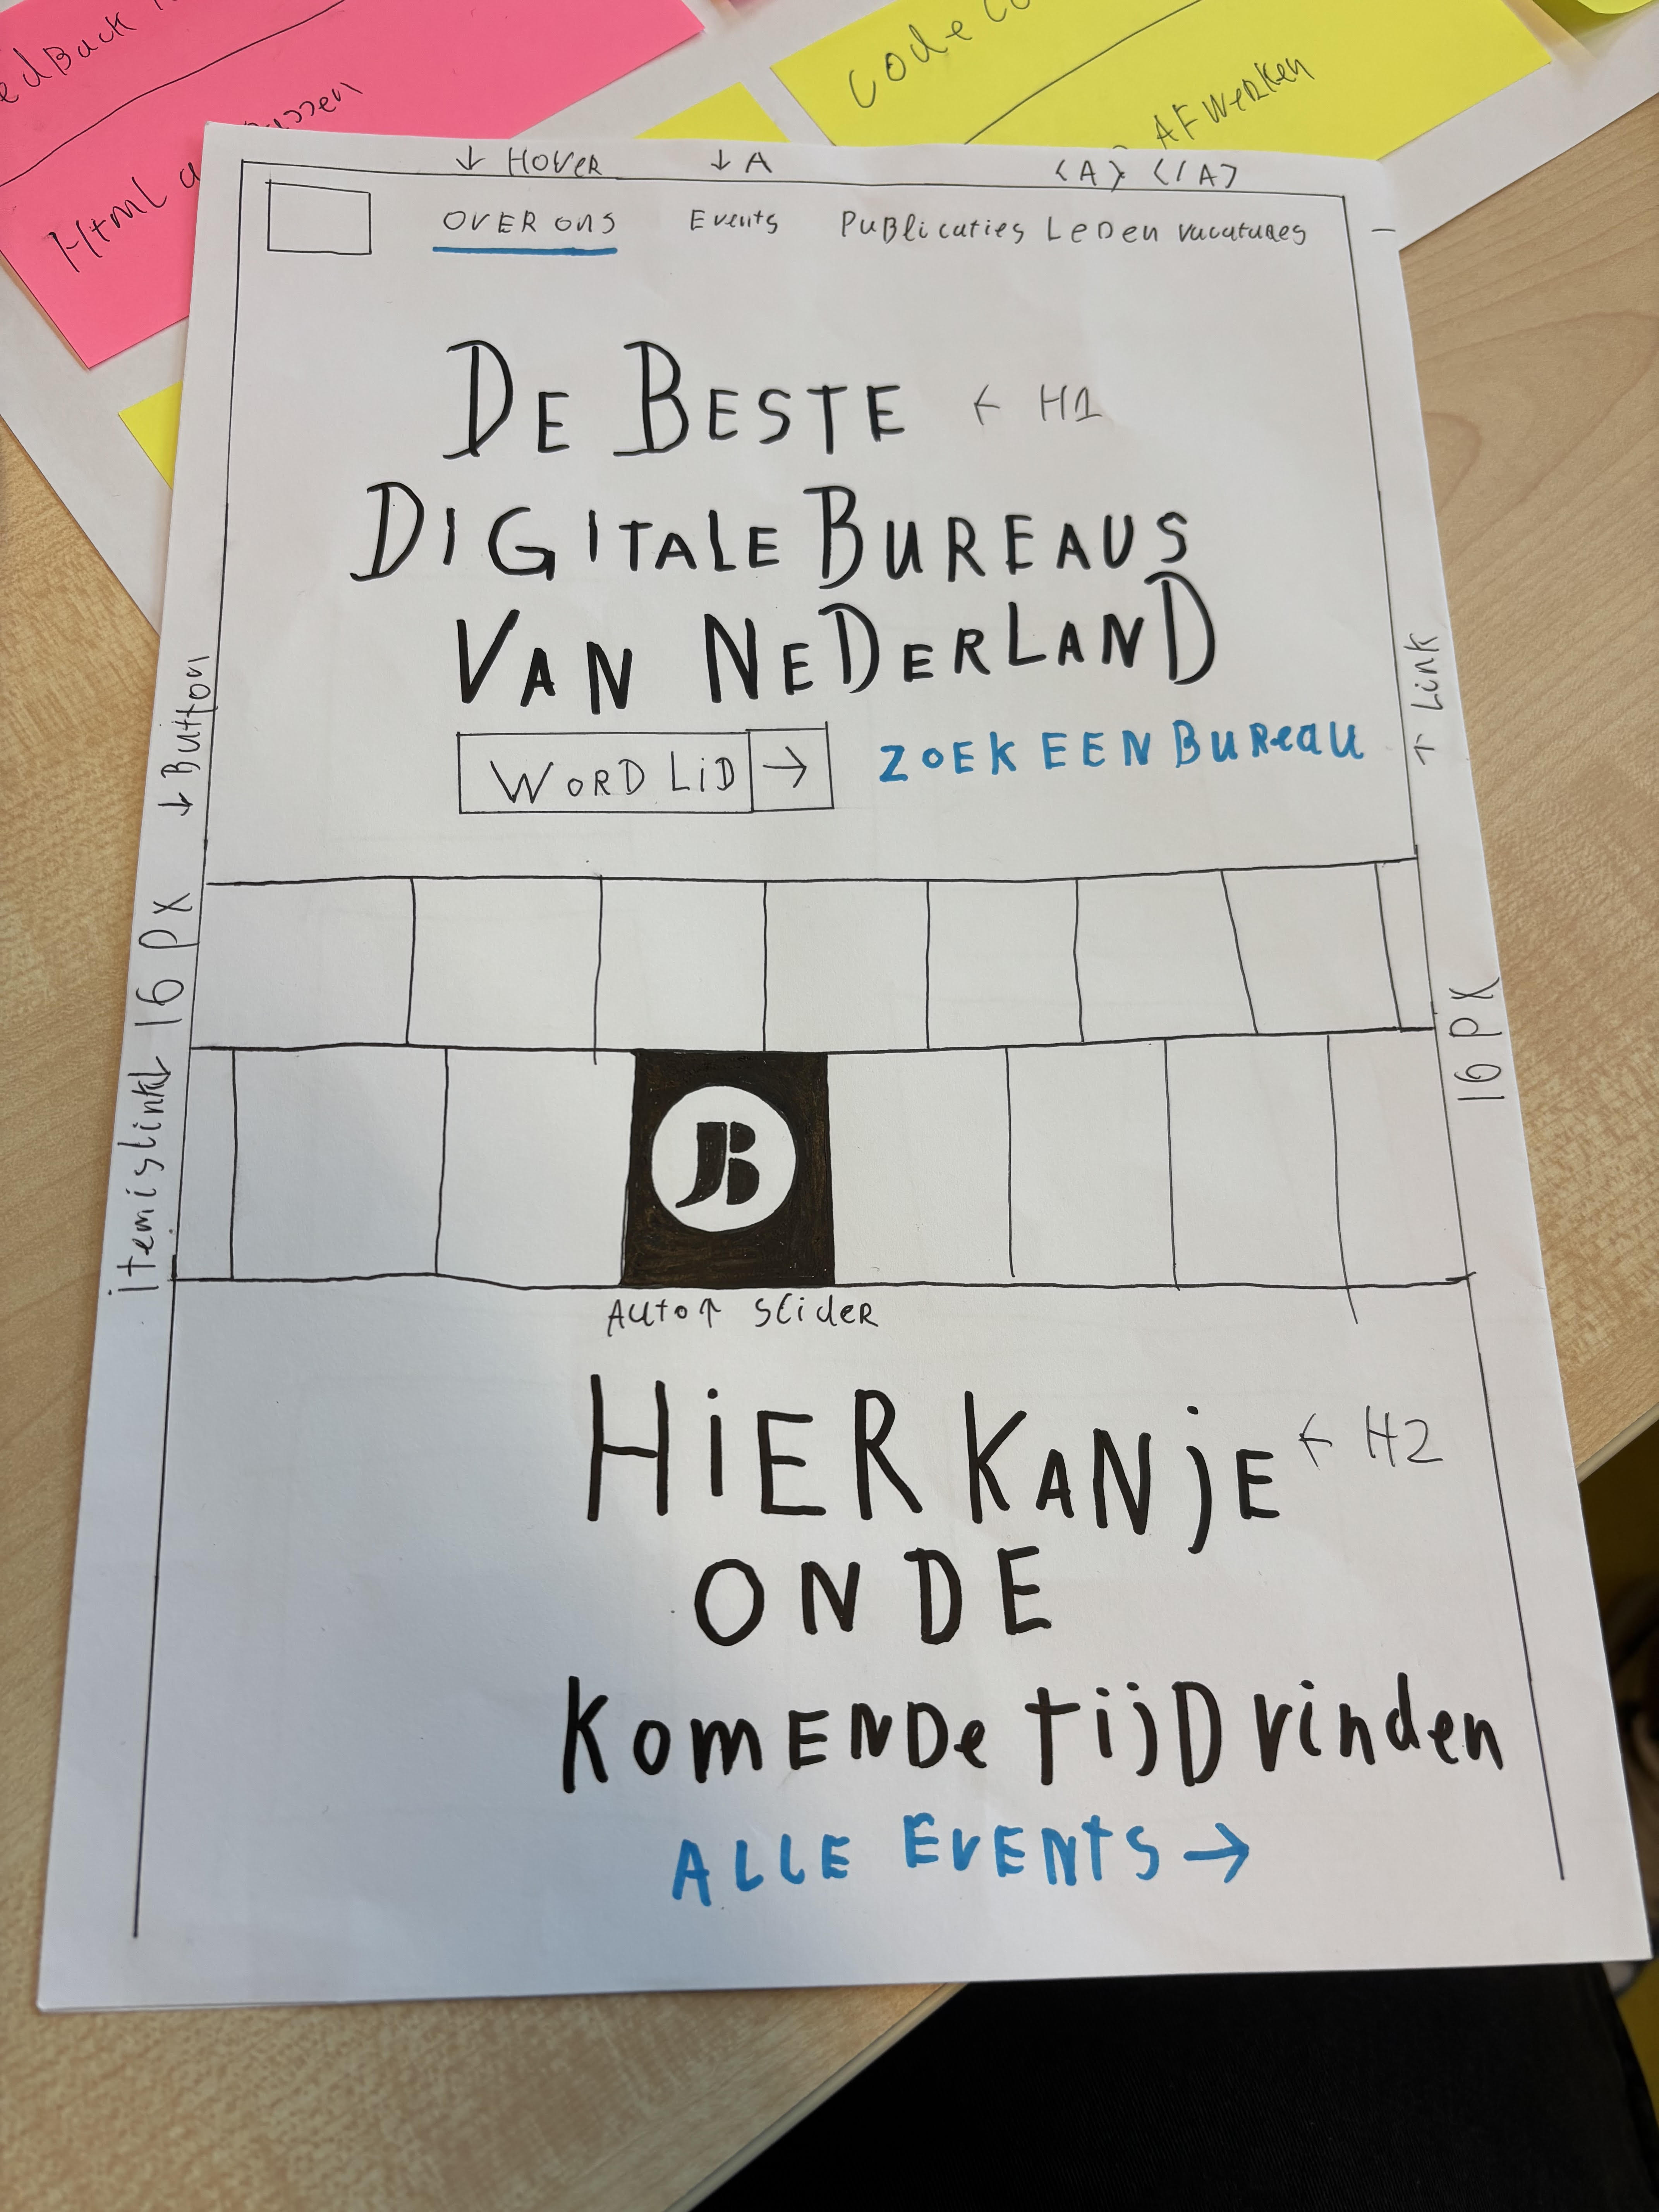 Code
Html
AFWerken
↓ Hover ↓ A <A> </A>
Over ons Events Publicaties Leden vacatures
De Beste ← H1
Digitale Bureaus
Van Nederland
Word Lid → Zoek een Bureau
↓ Button
↑ Link
16 px
16 px
item is link↓
JB
Auto↑ Slider
Hier kan je ← H2
on de
komende tijd vinden
Alle Events →